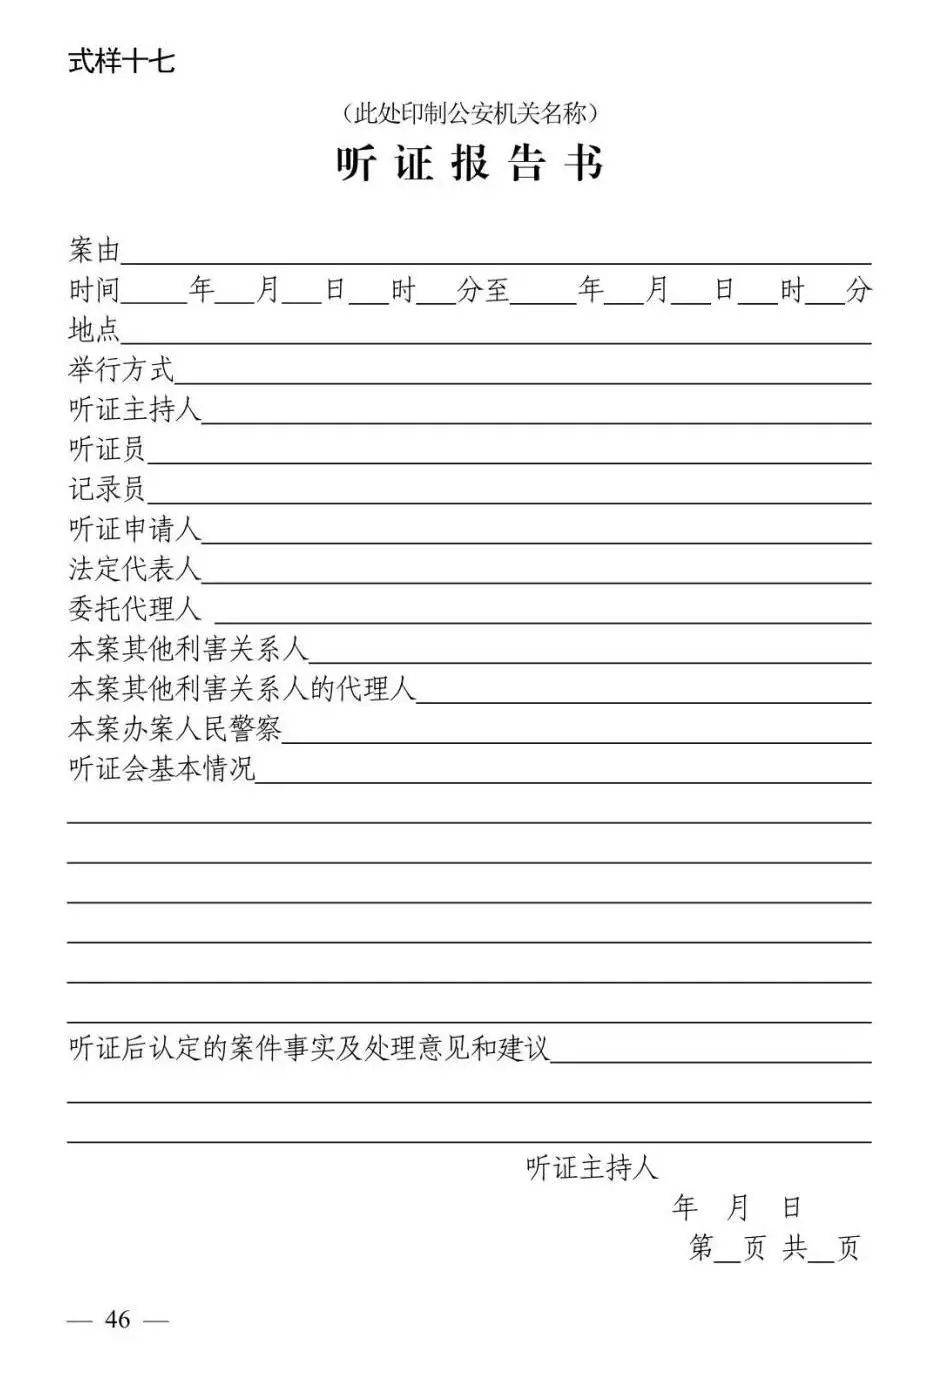 式样十七
（此处印制公安机关名称）
听证报告书
案由
时间____年__月__日__时__分至____年__月__日__时__分
地点
举行方式
听证主持人
听证员
记录员
听证申请人
法定代表人
委托代理人
本案其他利害关系人
本案其他利害关系人的代理人
本案办案人民警察
听证会基本情况
听证后认定的案件事实及处理意见和建议
听证主持人
年 月 日
第__页 共__页
— 46 —